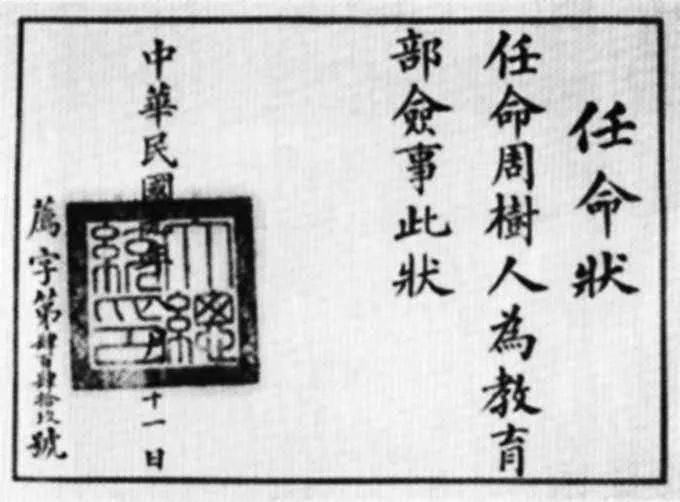 任命狀
任命周樹人為教育
部僉事此狀
中華民國十一日
大總統印
薦字第肆百肆拾玖號